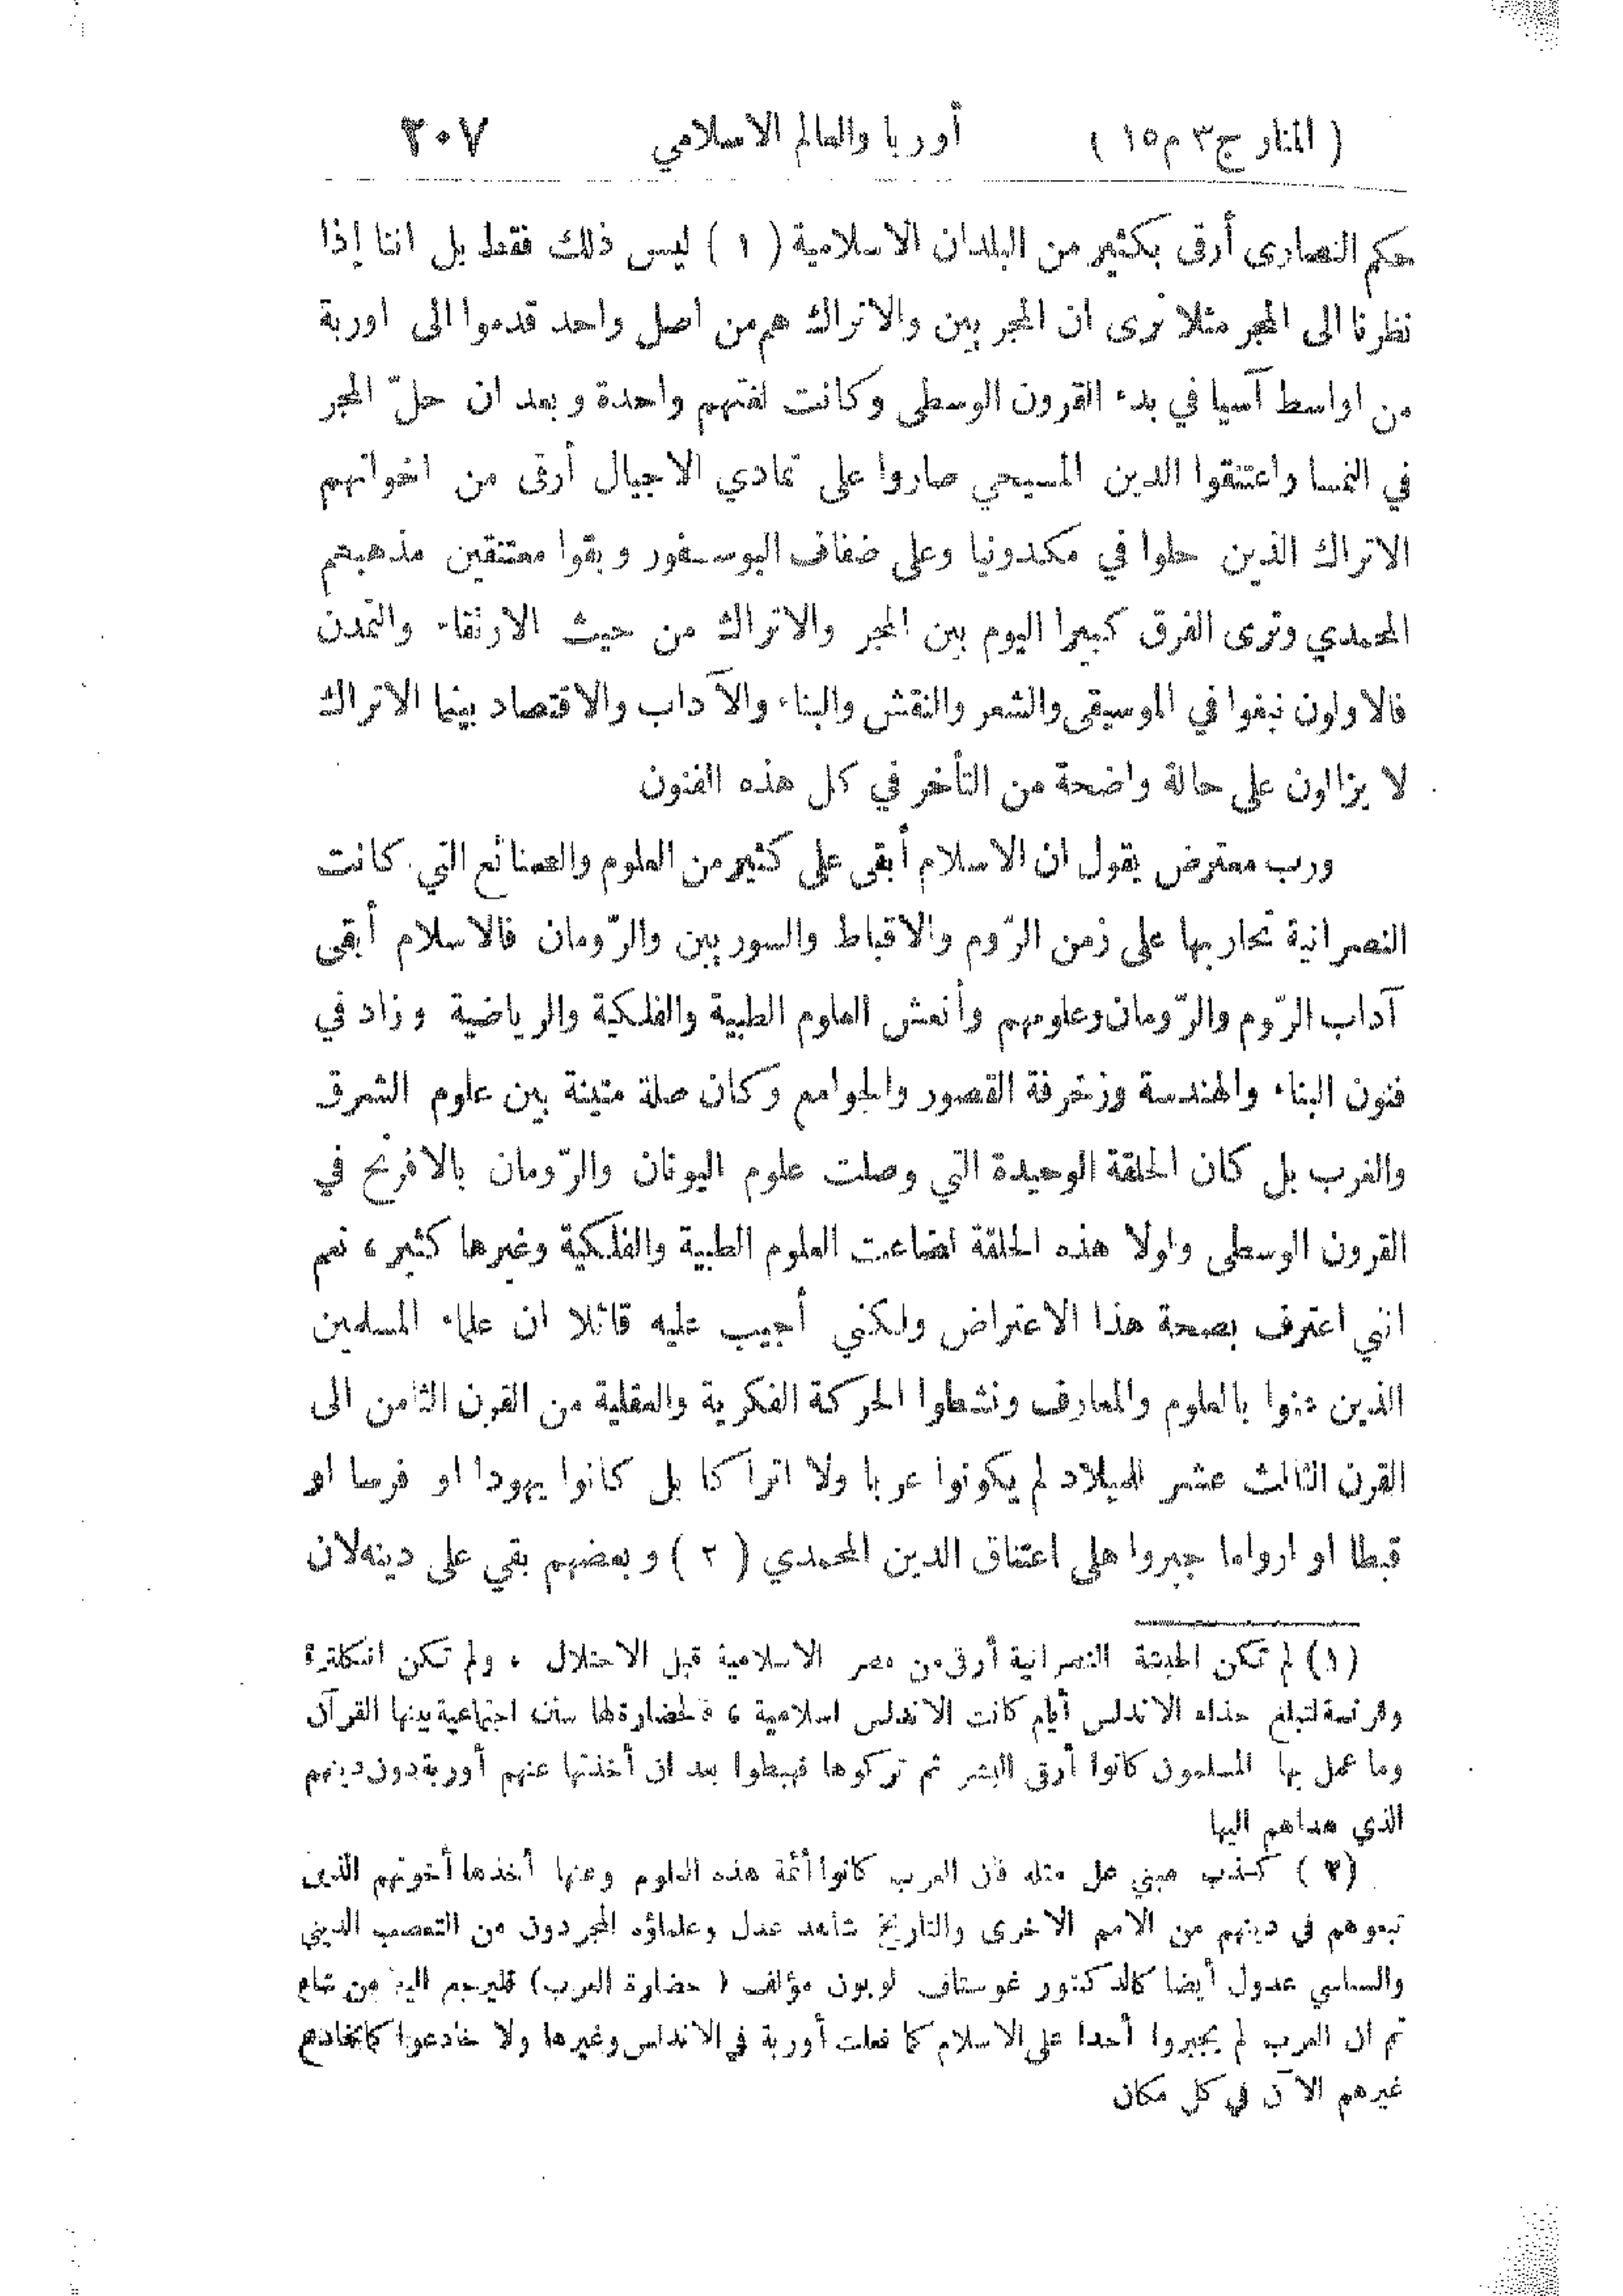 ( المنار ج ٣ م ١٥ ) أوربا والعالم الاسلامي ٢٠٧
حكم النصارى أرقى بكثير من البلدان الاسلامية ( ١ ) ليس ذلك فقط بل اننا إذا
نظرنا الى المجر مثلا نرى ان المجريين والاتراك هم من اصل واحد قدموا الى اوربة
من اواسط آسيا في بدء القرون الوسطى وكانت لغتهم واحدة وبعد ان حلّ المجر
في النمسا واعتنقوا الدين المسيحي صاروا على تمادي الاجيال أرقى من اخواتهم
الاتراك الذين حلوا في مكدونيا وعلى ضفاف البوسفور وبقوا معتنقين مذهبهم
المحمدي وترى الفرق كبيرا اليوم بين المجر والاتراك من حيث الارتقاء والتمدن
فالاولون نبغوا في الموسيقى والشعر والنقش والبناء والآداب والاقتصاد بينما الاتراك
لا يزالون على حالة واضحة من التأخر في كل هذه الفنون
ورب معترض يقول ان الاسلام أبقى على كثير من العلوم والصنائع التي كانت
النصرانية تحاربها على زمن الرّوم والاقباط والسوريين والرّومان فالاسلام أبقى
آداب الرّوم والرّومان وعلومهم وأنعش العلوم الطبية والفلكية والرياضية وزاد في
فنون البناء والهندسة وزخرفة القصور والجوامع وكان صلة متينة بين علوم الشرق
والغرب بل كان الحلقة الوحيدة التي وصلت علوم اليونان والرّومان بالافرنج في
القرون الوسطى ولولا هذه الحلقة لضاعت العلوم الطبية والفلكية وغيرها كثير ، نعم
انني اعترف بصحة هذا الاعتراض ولكني أجيب عليه قائلا ان علماء المسلمين
الذين عنوا بالعلوم والمعارف ونشطوا الحركة الفكرية والعقلية من القرن الثامن الى
القرن الثالث عشر للميلاد لم يكونوا عربا ولا اتراكا بل كانوا يهودا او فرسا او
قبطا او ارواما جبروا على اعتناق الدين المحمدي ( ٢ ) وبعضهم بقي على دينه لان
(١) لم تكن الحبشة النصرانية أرقى من مصر الاسلامية قبل الاحتلال ، ولم تكن انكلترة
وفرنسة لتبلغ حذاء الاندلس أيام كانت الاندلس اسلامية ، فلحضارة لها سنن اجتماعية بينها القرآن
وما عمل بها المسلمون كانوا أرقى البشر ثم تركوها فهبطوا بعد ان أخذتها عنهم أوربة دون دينهم
الذي هداهم اليها
(٢) كذب مبني على مثله فان العرب كانوا أئمة هذه العلوم وعنها أخذها أخوتهم الذين
تبعوهم في دينهم من الامم الاخرى والتاريخ شاهد عدل وعلماؤه المجردون من التعصب الديني
والسياسي عدول أيضا كالدكتور غوستاف لوبون مؤلف ( حضارة العرب) فليرجع اليه من شاء
ثم ان العرب لم يجبروا أحدا على الاسلام كما فعلت أوربة في الاندلس وغيرها ولا خادعوا كما يخادع
غيرهم الآن في كل مكان